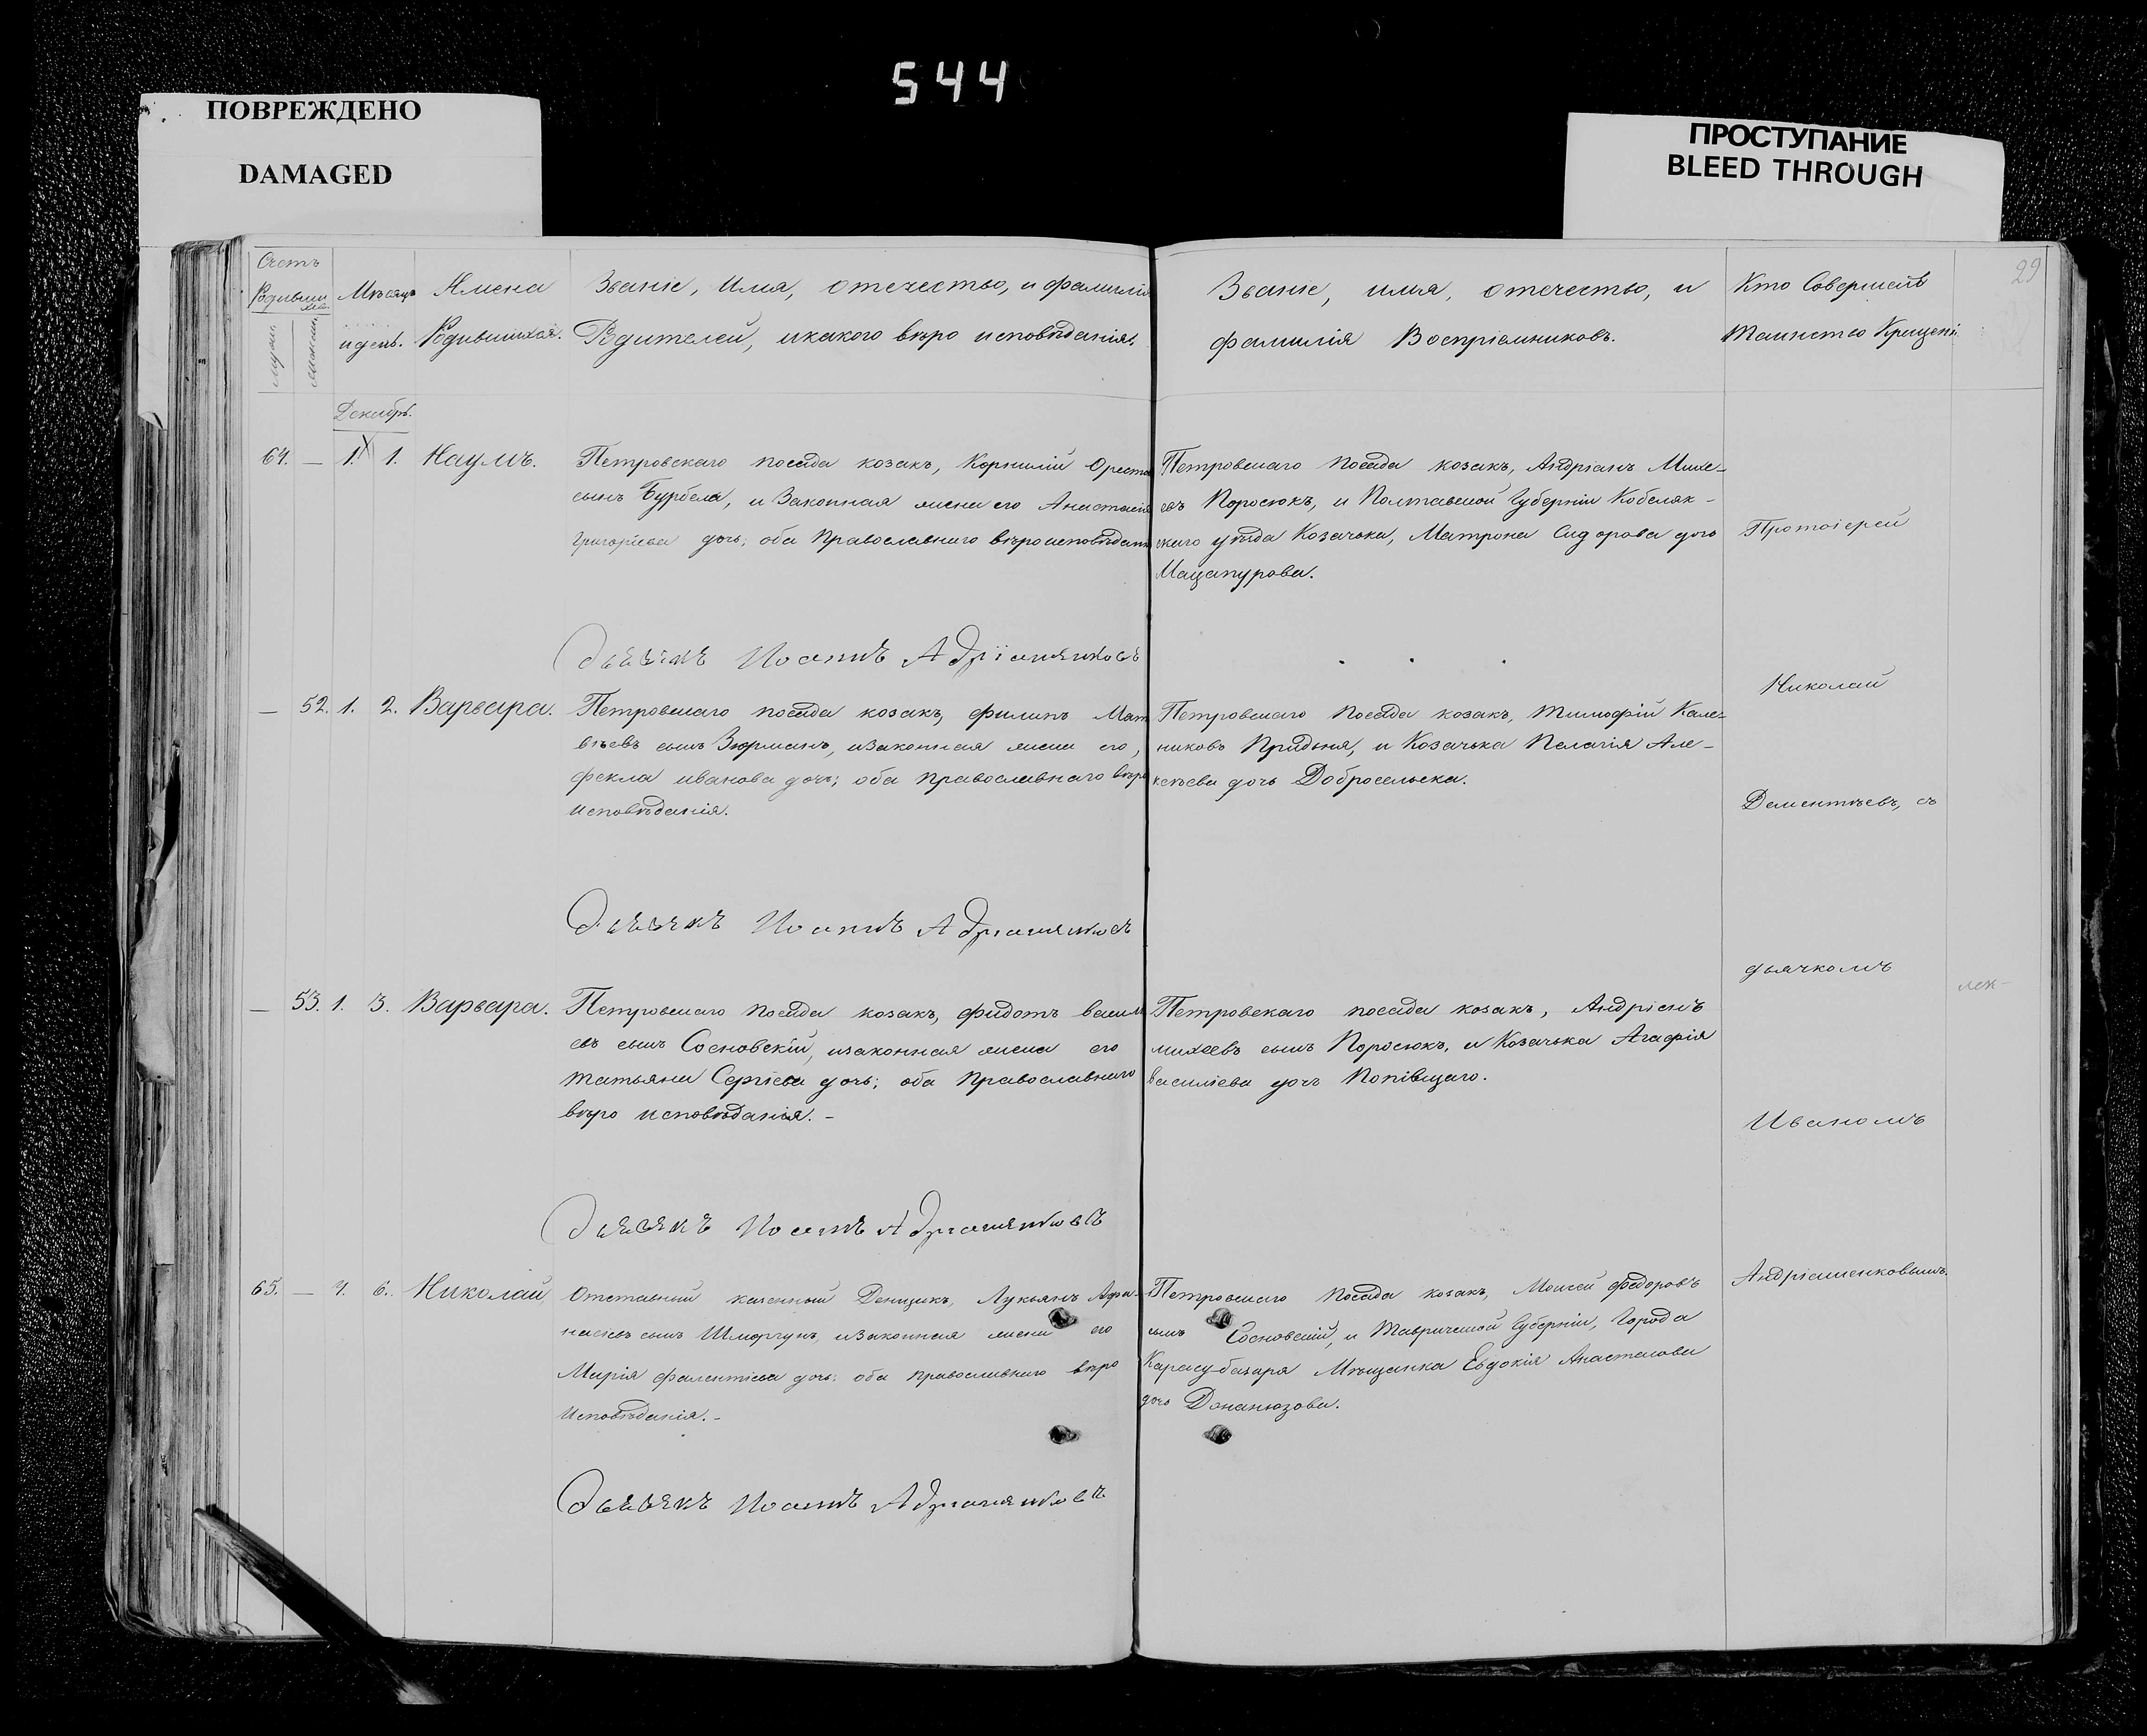 544
ПОВРЕЖДЕНО
DAMAGED
ПРОСТУПАНИЕ
BLEED THROUGH
29
Счетъ
Родивши
хся.
Мѣсяцъ
и день.
Имена
Родившихся.
Званіе, Имя, отечество, и фамилія
Родителей, и какого вѣро исповѣданія.
Званіе, имя, отечество, и
фамилія Воспріемниковъ.
Кто Совершалъ
Таинство Крещені
Декабрь.
64. — 1. 1. Наумъ.
Петровскаго посада козакъ, Корнилій Орестов
сынъ Бурбела, и Законная жена его Анастасія
Григоріева дочь; оба Православнаго вѣроисповѣдан
Петровскаго Посада козакъ, Андріанъ Михе-
евъ Поросюкъ, и Полтавской Губерніи Кобеляк-
скаго уѣзда Козачька, Матрона Сидорова дочь
Мацапурова.
Протоіерей
Дьячекъ Иоаннъ Адріаненковъ
Николай
— 52. 1. 2. Варвара.
Петровскаго посада козакъ, филипъ Мат
вѣевъ сынъ Зюрманъ, и законная жена его,
фекла иванова дочь; оба православнаго вѣро
исповѣданія.
Петровскаго Посада козакъ, Тимофій Кале-
никовъ Придыня, и Козачька Пелагія Але-
ксѣева дочь Добросельска.
Дементьевъ, съ
Дьячекъ Иоаннъ Адріаненковъ
дьячкомъ
— 53. 1. 3. Варвара.
Петровскаго Посада козакъ, фидотъ васил
евъ сынъ Сосновскій, и законная жена его
татьяна Сергіева дочь; оба Православнаго
вѣро исповѣданія. -
Петровскаго посада козакъ, Андріенъ
михеевъ сынъ Поросюкъ, и Козачька Агафія
василіева дочь Попівщаго.
Иваномъ
Дьячекъ Иоаннъ Адріаненковъ
65. — 4. 6. Николай
Отставный казенный Денщикъ, Лукьянъ Афа-
насіевъ сынъ Шморгунъ, и законная жена его
Марія фалентіева дочь: оба православнаго вѣро
Исповѣданія. -
Петровскаго Посада козакъ, Моисей федоровъ
сынъ Сосновскій, и Таврической Губерніи, Города
Карасу-базаря Мѣщанка Евдокія Анастасова
дочь Донанюзова.
Андріаненковымъ.
Дьячекъ Иоаннъ Адріаненковъ